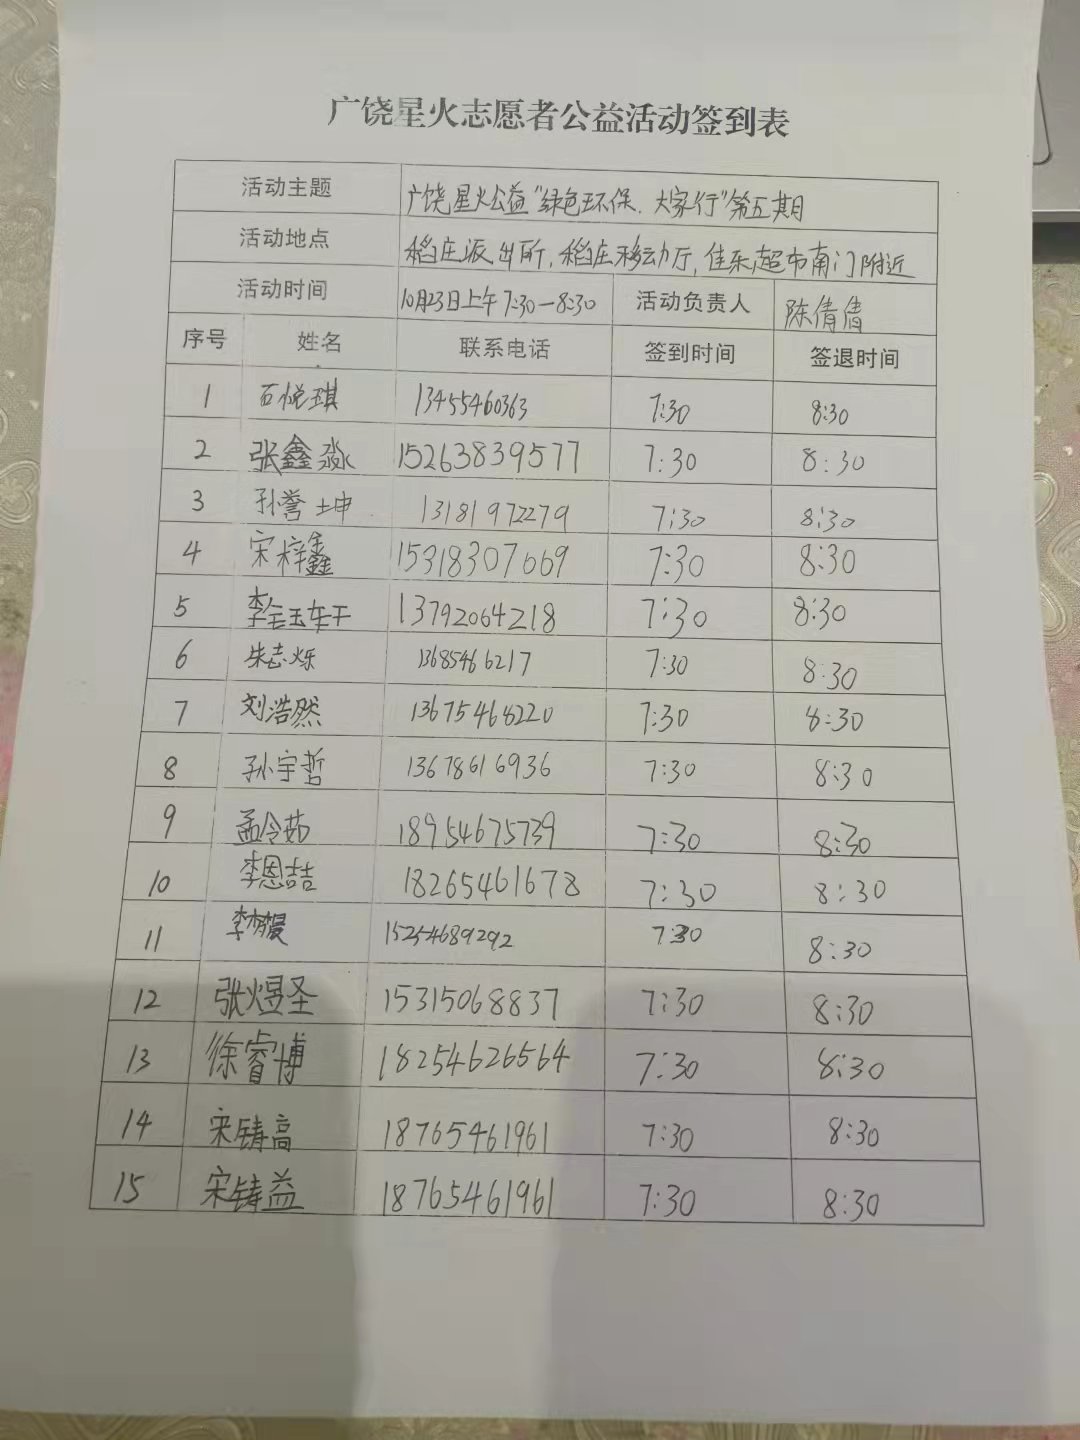 广饶星火志愿者公益活动签到表
活动主题 广饶星火公益"绿色环保.大家行"第五期
活动地点 稻庄派出所,稻庄移动厅,佳乐超市南门附近
活动时间 10月23日上午7:30—8:30 活动负责人 陈倩倩
序号 姓名 联系电话 签到时间 签退时间
1 石悦琪 13455460363 7:30 8:30
2 张鑫淼 15263839577 7:30 8:30
3 孙誉坤 13181972279 7:30 8:30
4 宋梓鑫 15318307669 7:30 8:30
5 李 13792064218 7:30 8:30
6 朱志烁 13685466217 7:30 8:30
7 刘浩然 13675468220 7:30 8:30
8 孙宇哲 13678616936 7:30 8:30
9 孟令茹 18954675739 7:30 8:30
10 李恩喆 18265461678 7:30 8:30
11 李 15254689292 7:30 8:30
12 张煜圣 15315068837 7:30 8:30
13 徐睿博 18254626564 7:30 8:30
14 宋铸高 18765461961 7:30 8:30
15 宋铸益 18765461961 7:30 8:30